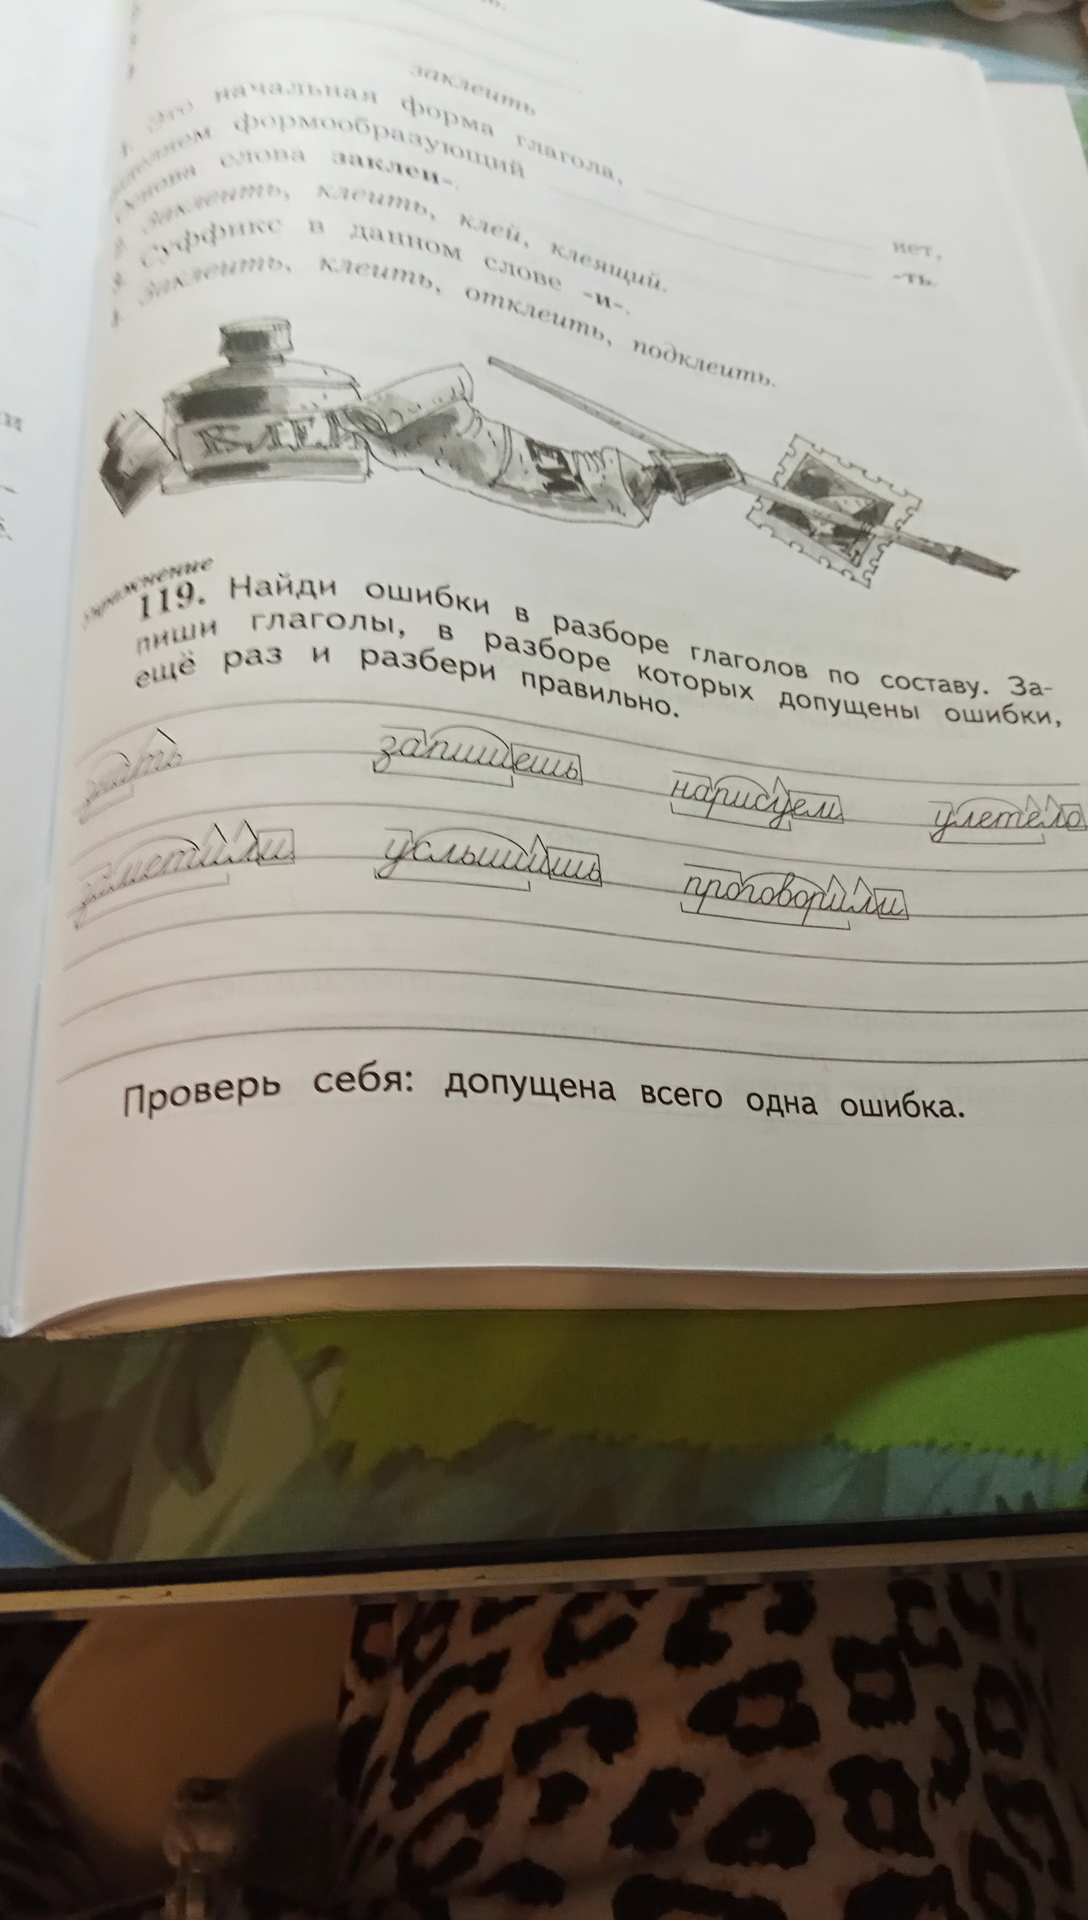 заклеить
1. Это начальная форма глагола, нет,
формообразующий -ть.
Основа слова заклеи-.
2. Заклеить, клеить, клей, клеящий.
3. Суффикс в данном слове -и-.
4. Заклеить, клеить, отклеить, подклеить.
КЛЕЙ
Упражнение
119. Найди ошибки в разборе глаголов по составу. За-
пиши глаголы, в разборе которых допущены ошибки,
ещё раз и разбери правильно.
знать запишешь нарисуем улетело
заметили услышишь проговорили
Проверь себя: допущена всего одна ошибка.